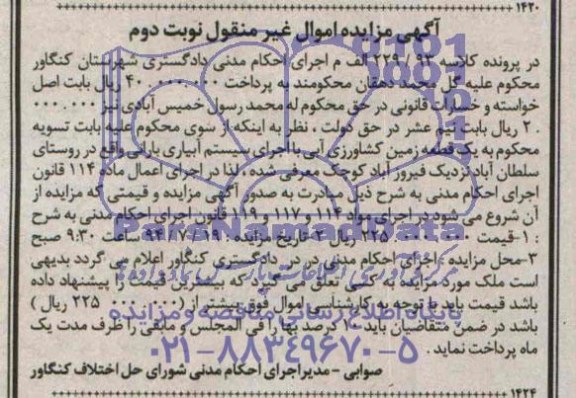 ۱۴۲۰
آگهی مزایده اموال غیر منقول نوبت دوم
در پرونده کلاسه ۹۳ / ۲۲۹ الف م اجرای احکام مدنی دادگستری شهرستان کنگاور
محکوم علیه گل محمد دهقان محکومند به پرداخت ۴۰۰۰۰۰۰۰۰ ریال بابت اصل
خواسته و خسارات قانونی در حق محکوم له محمد رسول خمیس آبادی نیز ۰۰۰ . ۰۰۰
. ۲ ریال بابت نیم عشر در حق دولت ، نظر به اینکه از سوی محکوم علیه بابت تسویه
محکوم به یک قطعه زمین کشاورزی آبی با اجرای سیستم آبیاری بارانی واقع در روستای
سلطان آباد نزدیک فیروز آباد کوچک معرفی شده ، لذا در اجرای اعمال ماده ۱۱۴ قانون
اجرای احکام مدنی به شرح ذیل مبادرت به صدور آگهی مزایده و قیمتی که مزایده از
آن شروع می شود در اجرای مواد ۱۱۴ و ۱۱۷ و ۱۱۹ قانون اجرای احکام مدنی به شرح
: ۱-قیمت ۲۲۵ ۰۰۰ ۰۰۰ ریال ۲-تاریخ مزایده : ۹۴/۱۲/۱۹ ساعت ۹:۳۰ صبح
۳-محل مزایده : اجرای احکام مدنی در در دادگستری کنگاور اعلام می گردد بدیهی
است ملک مورد مزایده به کسی تعلق می گیرد که بیشترین قیمت را پیشنهاد داده
باشد قیمت باید با توجه به کارشناسی اموال فوق بیشتر از (۰۰۰ ۰۰۰ ۲۲۵ ریال )
باشد در ضمن متقاضیان باید ۱۰ درصد بها را فی المجلس و مابقی را ظرف مدت یک
ماه پرداخت نماید .
صوابی - مدیر اجرای احکام مدنی شورای حل اختلاف کنگاور
۱۴۲۴
ParsNamadData
پایگاه اطلاع رسانی مناقصه و مزایده
۰۲۱-۸۸۳۴۹۶۷۰-۵